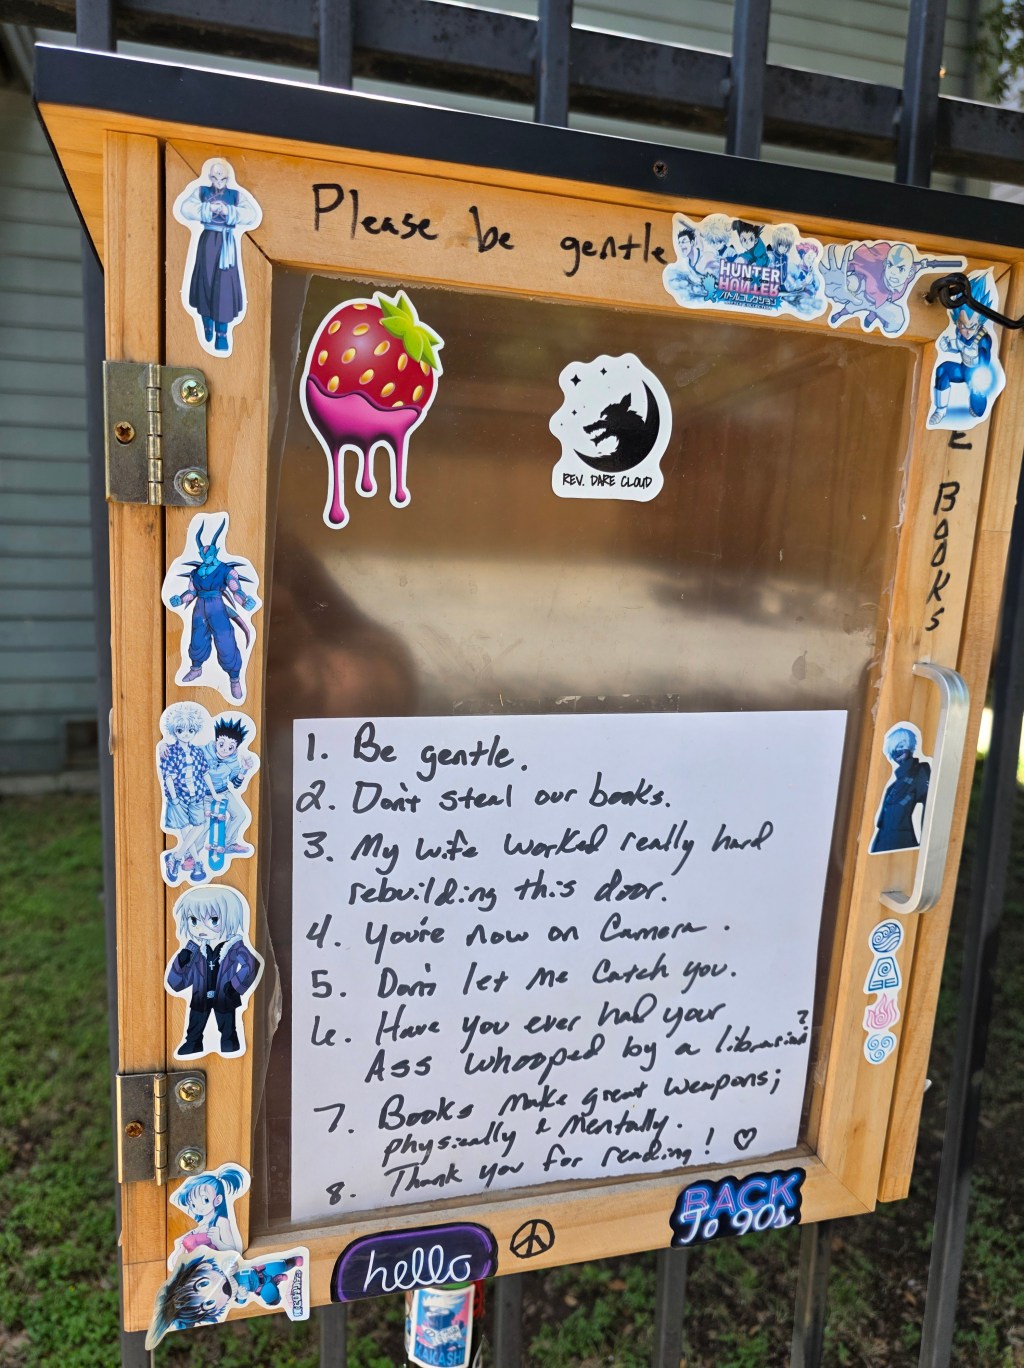 Please be gentle
HUNTER
HUNTER
バトルコレクション
REV. DARE CLOUD
E
BOOKS
1. Be gentle.
2. Don't steal our books.
3. My wife worked really hard
rebuilding this door.
4. You're now on Camera.
5. Don't let me catch you.
6. Have you ever had your
Ass whooped by a librarian?
7. Books make great weapons;
physically & Mentally.
8. Thank you for reading! ♡
BACK
To 90s
hello
KAKASHI